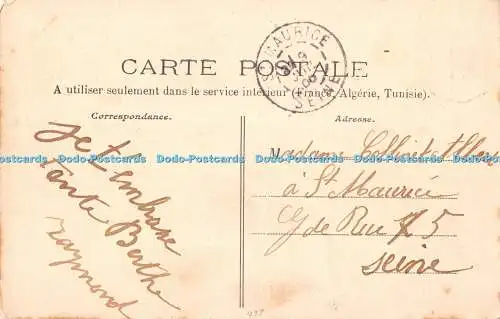 CARTE POSTALE
ST MAURICE
SEINE
A utiliser seulement dans le service intérieur (France, Algérie, Tunisie).
Correspondance.
Je t'embrasse
Tante Berthe
Raymond
Adresse.
Madame
à St Maurice
de Rue 5
Seine
Dodo-Postcards Dodo-Postcards Dodo-Postcards Dodo-Postcards Dodo-Postcards